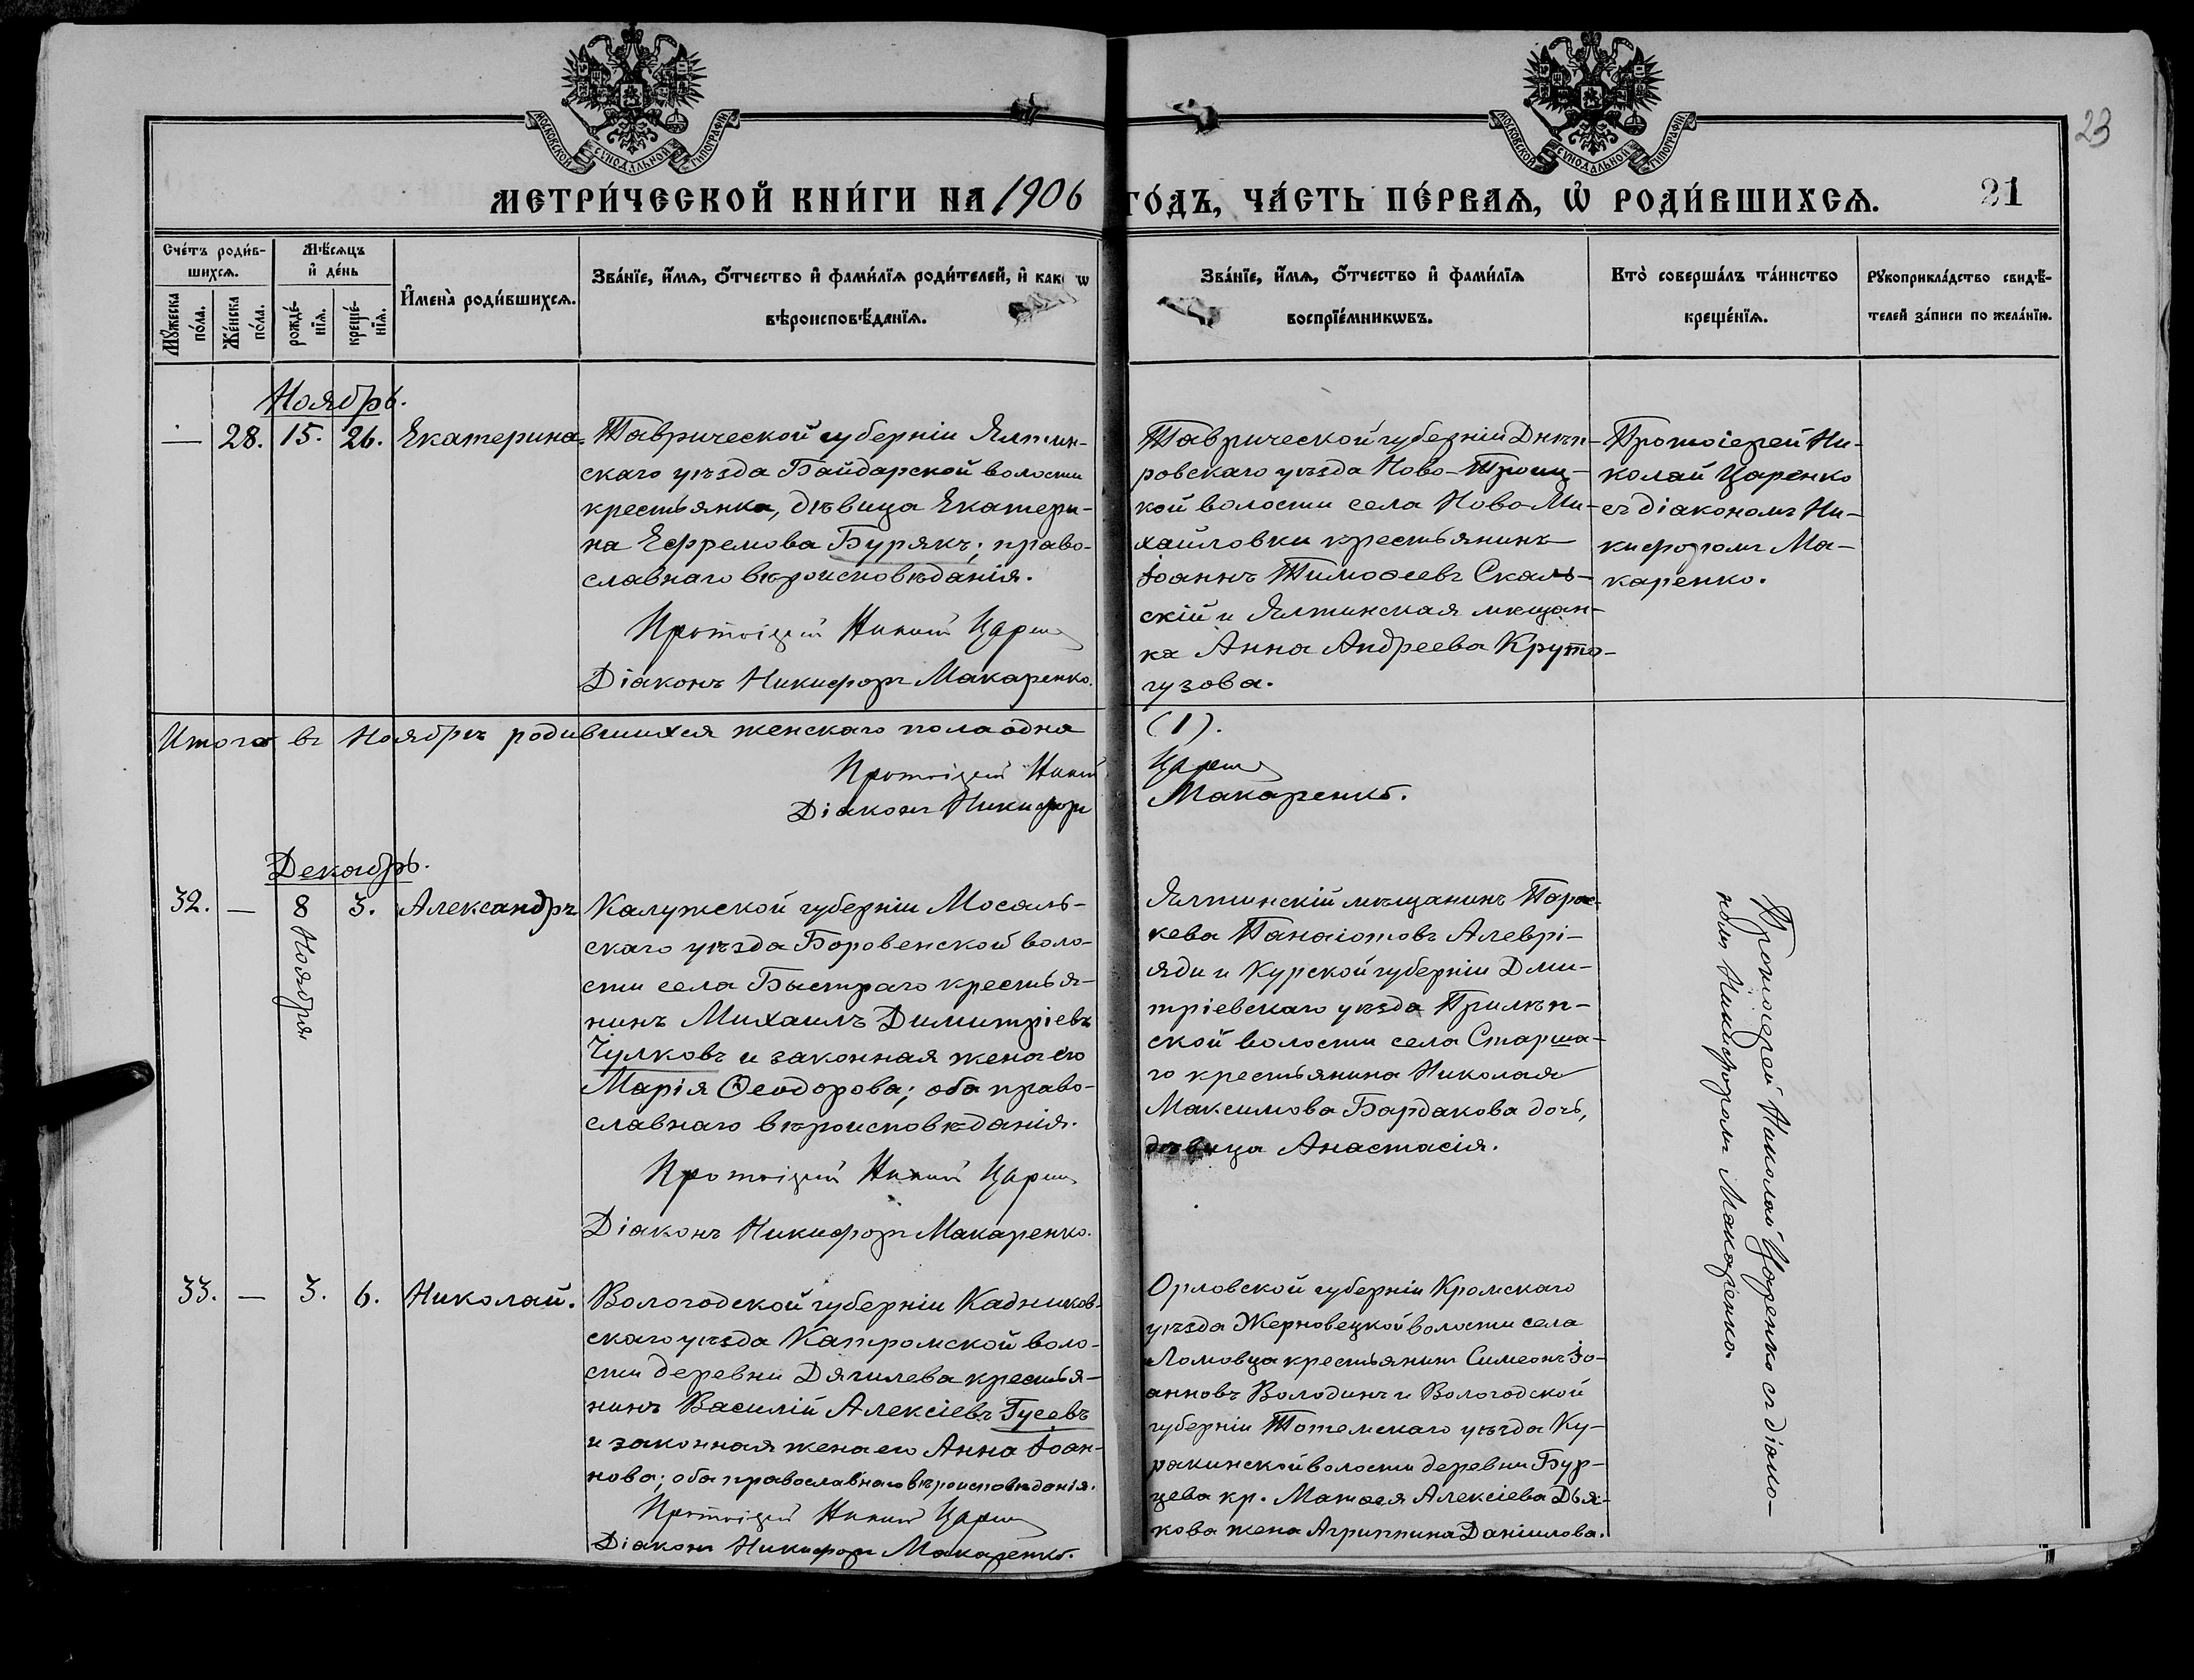 МОСКОВСКОЙ СѴНОДАЛЬНОЙ ТИПОГРАФІИ
МОСКОВСКОЙ СѴНОДАЛЬНОЙ ТИПОГРАФІИ
23
МЕТРИ́ЧЕСКОЙ КНИ́ГИ НА 1906 ГО́ДЪ, ЧА́СТЬ ПЕ́РВАѦ, Ѡ҆ РОДИ́ВШИХСѦ.
21
Сче́тъ роди́в-
шихсѧ.
Мѣ́сѧцъ
и҆ де́нь
Мꙋ́жеска
по́ла.
Же́нска
по́ла.
рожде́-
нїѧ.
креще́-
нїѧ.
И҆мена̀ роди́вшихсѧ.
Зва́нїе, и҆́мѧ, ѻ҆́тчество и҆ фами́лїѧ роди́телей, и҆ как ѡ
вѣроисповѣ́данїѧ.
Зва́нїе, и҆́мѧ, ѻ҆́тчество и҆ фами́лїѧ
воспрїе́мникѡвъ.
Кто̀ соверша́лъ та́инство
креще́нїѧ.
Рꙋкоприкла́дство свидѣ́-
телей за́писи по жела́нїю.
Ноябрь.
— 28. 15. 26. Екатерина.
Таврической губерніи Ялтин-
скаго уѣзда Байдарской волости
крестьянка, дѣвица Екатери-
на Ефремова Бурякъ; право-
славнаго вѣроисповѣданія.
Протоіерей Николай Царенко
Діаконъ Никифоръ Макаренко.
Таврической губерніи Днѣп-
ровскаго уѣзда Ново-Троиц-
кой волости села Ново-Ми-
хайловки крестьянинъ
Іоаннъ Тимоѳеевъ Скаль-
скій и Ялтинская мѣщан-
ка Анна Андреева Круто-
гузова.
Протоіерей Ни-
колай Царенко
съ діакономъ Ни-
кифоромъ Ма-
каренко.
Итого въ Ноябрѣ родившихся женскаго пола одна (1).
Протоіерей Николай Царенко
Діаконъ Никифоръ Макаренко.
Декабрь.
32. — 8 Ноября 3. Александръ
Калужской губерніи Мосаль-
скаго уѣзда Боровенской воло-
сти села Быстраго крестья-
нинъ Михаилъ Димитріевъ
Чулковъ и законная жена его
Марія Ѳеодорова; оба право-
славнаго вѣроисповѣданія.
Протоіерей Николай Царенко
Діаконъ Никифоръ Макаренко.
Ялтинскій мѣщанинъ Парас-
кева Панаіотовъ Алеврі-
яди и Курской губерніи Дми-
тріевскаго уѣзда Прилѣп-
ской волости села Старша-
го крестьянина Николая
Максимова Бардакова дочь,
дѣвица Анастасія.
Протоіерей Николай Царенко съ діако-
номъ Никифоромъ Макаренко.
33. — 3. 6. Николай.
Вологодской губерніи Кадников-
скаго уѣзда Катромской воло-
сти деревни Дягилева крестья-
нинъ Василій Алексіевъ Гусевъ
и законная жена его Анна Іоан-
нова; оба православнаго вѣроисповѣданія.
Протоіерей Николай Царенко
Діаконъ Никифоръ Макаренко.
Орловской губерніи Кромскаго
уѣзда Жерновецкой волости села
Ломовца крестьянинъ Симеонъ Іо-
анновъ Володинъ и Вологодской
губерніи Тотемскаго уѣзда Ку-
ракинской волости деревни Бур-
цева кр. Матѳея Алексіева Дья-
кова жена Агриппина Даніилова.